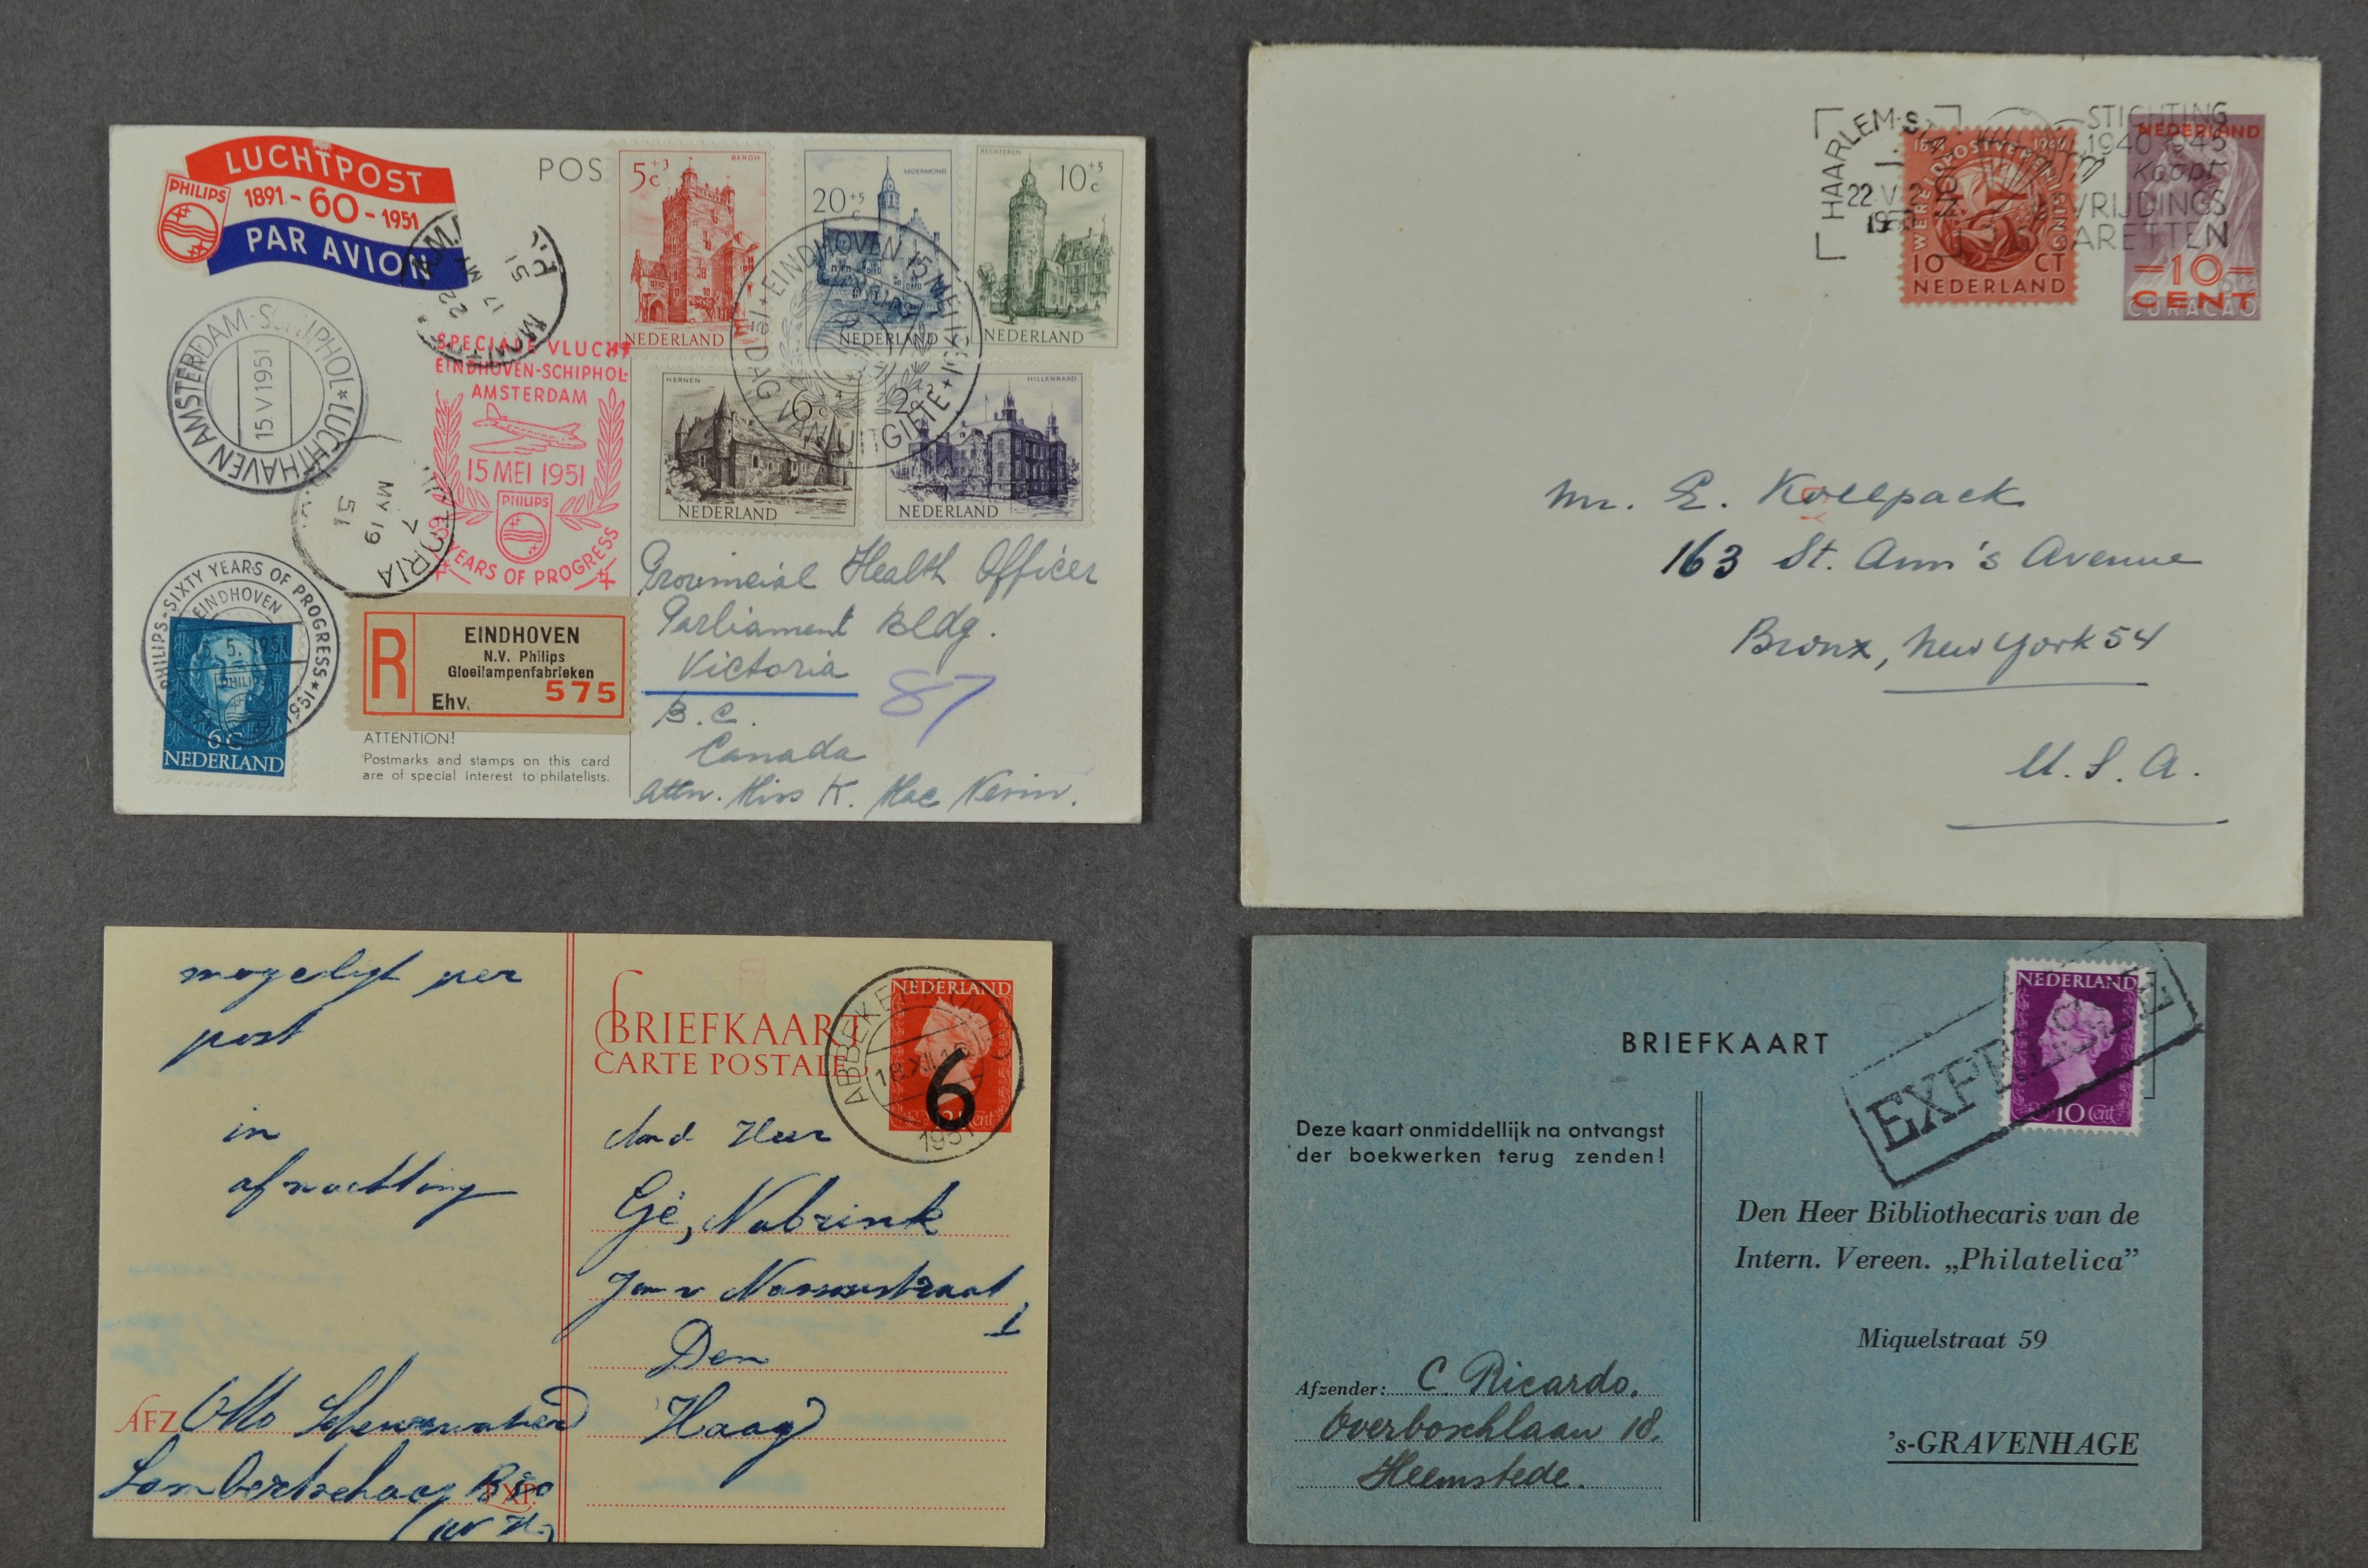 LUCHTPOST
PHILIPS
1891-60-1951
PAR AVION
POS
5+3 c
BERGH
NEDERLAND
20+5 c
MOERMOND
NEDERLAND
RECHTEREN
10+5 c
NEDERLAND
HERNEN
6+4 c
NEDERLAND
2+2 c
HILLENRAAD
NEDERLAND
EINDHOVEN 15 MEI 1951
DAG VAN UITGIFTE
AMSTERDAM-SCHIPHOL * LUCHTHAVEN AMSTERDAM
15 V 1951
17
51
SPECIALE VLUCHT
EINDHOVEN-SCHIPHOL-
AMSTERDAM
15 MEI 1951
PHILIPS
60 YEARS OF PROGRESS
7
MY 19
51
PHILIPS-SIXTY YEARS OF PROGRESS * 1951
EINDHOVEN
5. 1951
PHILIPS
6c
NEDERLAND
R
EINDHOVEN
N.V. Philips
Gloeilampenfabrieken
Ehv. 575
ATTENTION!
Postmarks and stamps on this card
are of special interest to philatelists.
Provincial Health Officer
Parliament Bldg.
Victoria
87
B.C.
Canada
attn. Miss K. Mac
HAARLEM-STATION
22 V
STICHTING
1940 1945
Koopt
VRIJDINGS
GARETTEN
WERELDPOSTVEREENIGING
1949
10 CT
NEDERLAND
NEDERLAND
-10-
CENT
CURACAO
Mr. E. Kollpack
163 St. Ann's Avenue
Bronx, New York 54
U.S.A.
mogelijk per
post
in
afwachting
BRIEFKAART
CARTE POSTALE
NEDERLAND
6
ABBEKERK
18 XII
1951
Aan d Heer
Gé, Nabrink
Jan v Nassaustraat
1
Den
Haag
AFZ Otto
Lambertschaag
BRIEFKAART
NEDERLAND
10 Cent
EXPRESSE
Deze kaart onmiddellijk na ontvangst
der boekwerken terug zenden!
Den Heer Bibliothecaris van de
Intern. Vereen. „Philatelica”
Miquelstraat 59
's-GRAVENHAGE
Afzender: C. Ricardo,
Overboschlaan 18.
Heemstede.